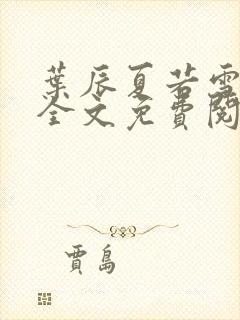 葉辰夏若雪
全文免費閱
賈島